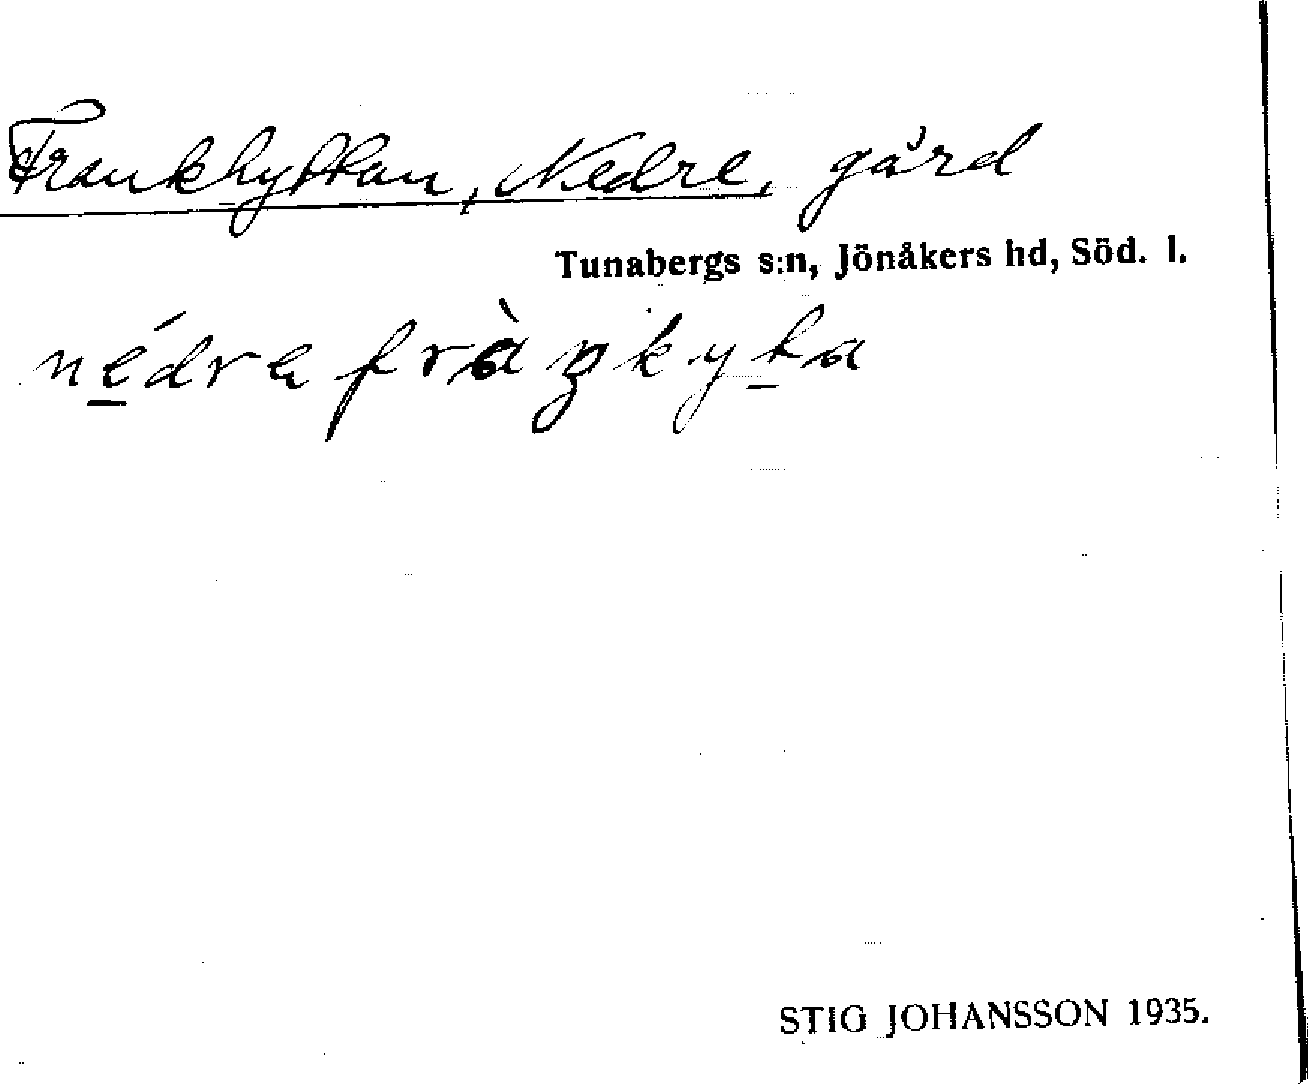 Frankhyttan, Nedre, gård
Tunabergs s:n, Jönåkers hd, Söd. l.
nédra fràŋkyta
STIG JOHANSSON 1935.